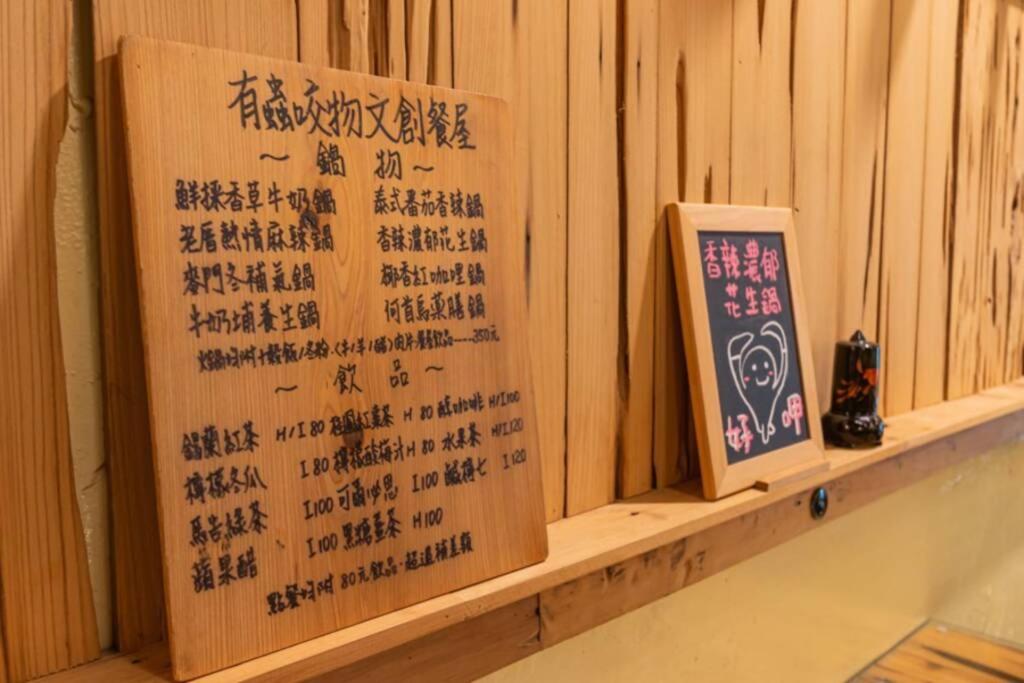 有蟲咬物文創餐屋
~ 鍋 物 ~
鮮採香草牛奶鍋 泰式番茄香辣鍋
老厝熱情麻辣鍋 香辣濃郁花生鍋
麥門冬補氣鍋 椰香紅咖哩鍋
牛奶埔養生鍋 何首烏藥膳鍋
火鍋均附十穀飯/冬粉.(牛/羊/豬)肉片.餐飲品----350元
~ 飲 品 ~
錫蘭紅茶 H/I 80 桂圓紅棗茶 H 80 醇咖啡 H/I 100
檸檬冬瓜 I 80 檸檬酸梅汁 H 80 水果茶 H/I 120
馬告綠茶 I 100 可爾必思 I 100 鹹檸七 I 120
蘋果醋 I 100 黑糖薑茶 H 100
點餐均附 80元飲品.超過補差額
香辣濃郁
花生鍋
好呷